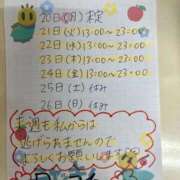 20日(月)
21日(火)13:00~23:00
22日(水)13:00~23:00
23日(木)13:00~23:00
24日(金)13:00~23:00
25日(土)
26日(日)
来週も私からは
逃げられませんので
よろしくお願いします